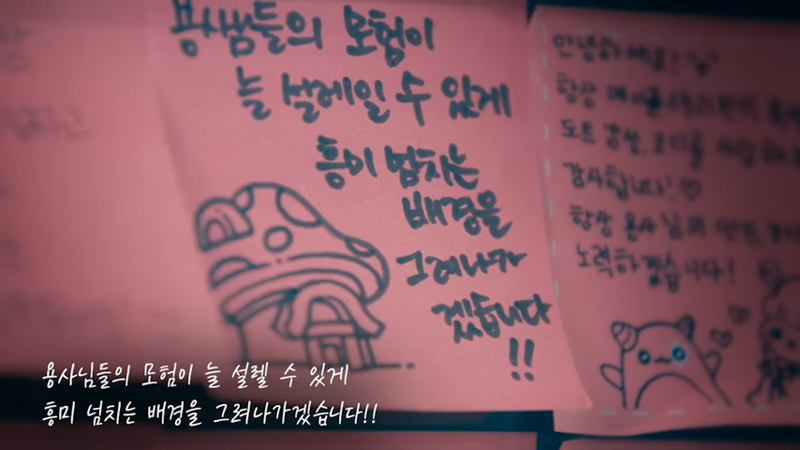 용사님들의 모험이
늘 설레일 수 있게
흥미 넘치는
배경을
그려나가
겠습니다
!!
안녕하세요!
항상
감사합니다! ♡
항상 용사님의
노력하겠습니다!
용사님들의 모험이 늘 설렐 수 있게
흥미 넘치는 배경을 그려나가겠습니다!!